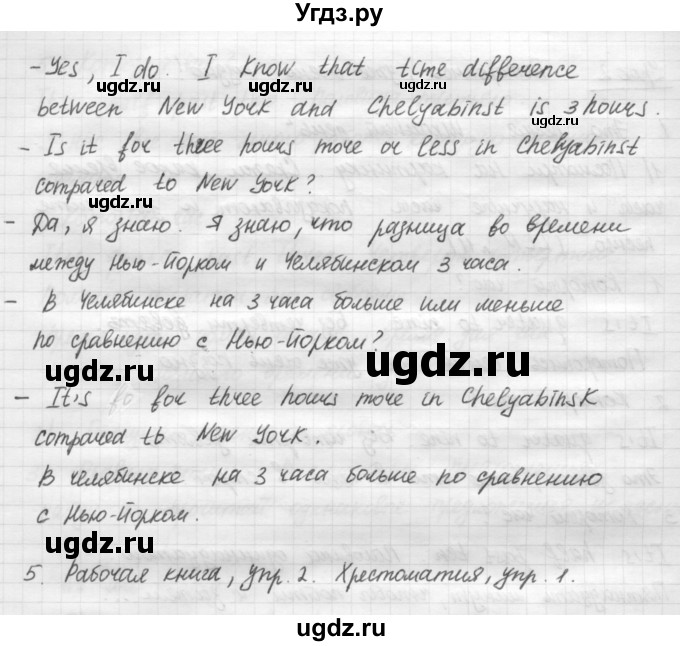 Угдз.ру
- Yes, I do. I know that time difference
between New York and Chelyabinst is 3 hours.
- Is it for three hours more or less in Chelyabinst
compared to New York?
- Да, я знаю. Я знаю, что разница во времени
между Нью-Йорком и Челябинском 3 часа.
- В Челябинске на 3 часа больше или меньше
по сравнению с Нью-Йорком?
- It's for three hours more in Chelyabinsk
compared to New York.
В Челябинске на 3 часа больше по сравнению
с Нью-Йорком.
5. Рабочая книга, упр. 2. Хрестоматия, упр. 1.
ugdz.ru
ugdz.ru
ugdz.ru
ugdz.ru
ugdz.ru
ugdz.ru
ugdz.ru
ugdz.ru
ugdz.ru
ugdz.ru
ugdz.ru
ugdz.ru